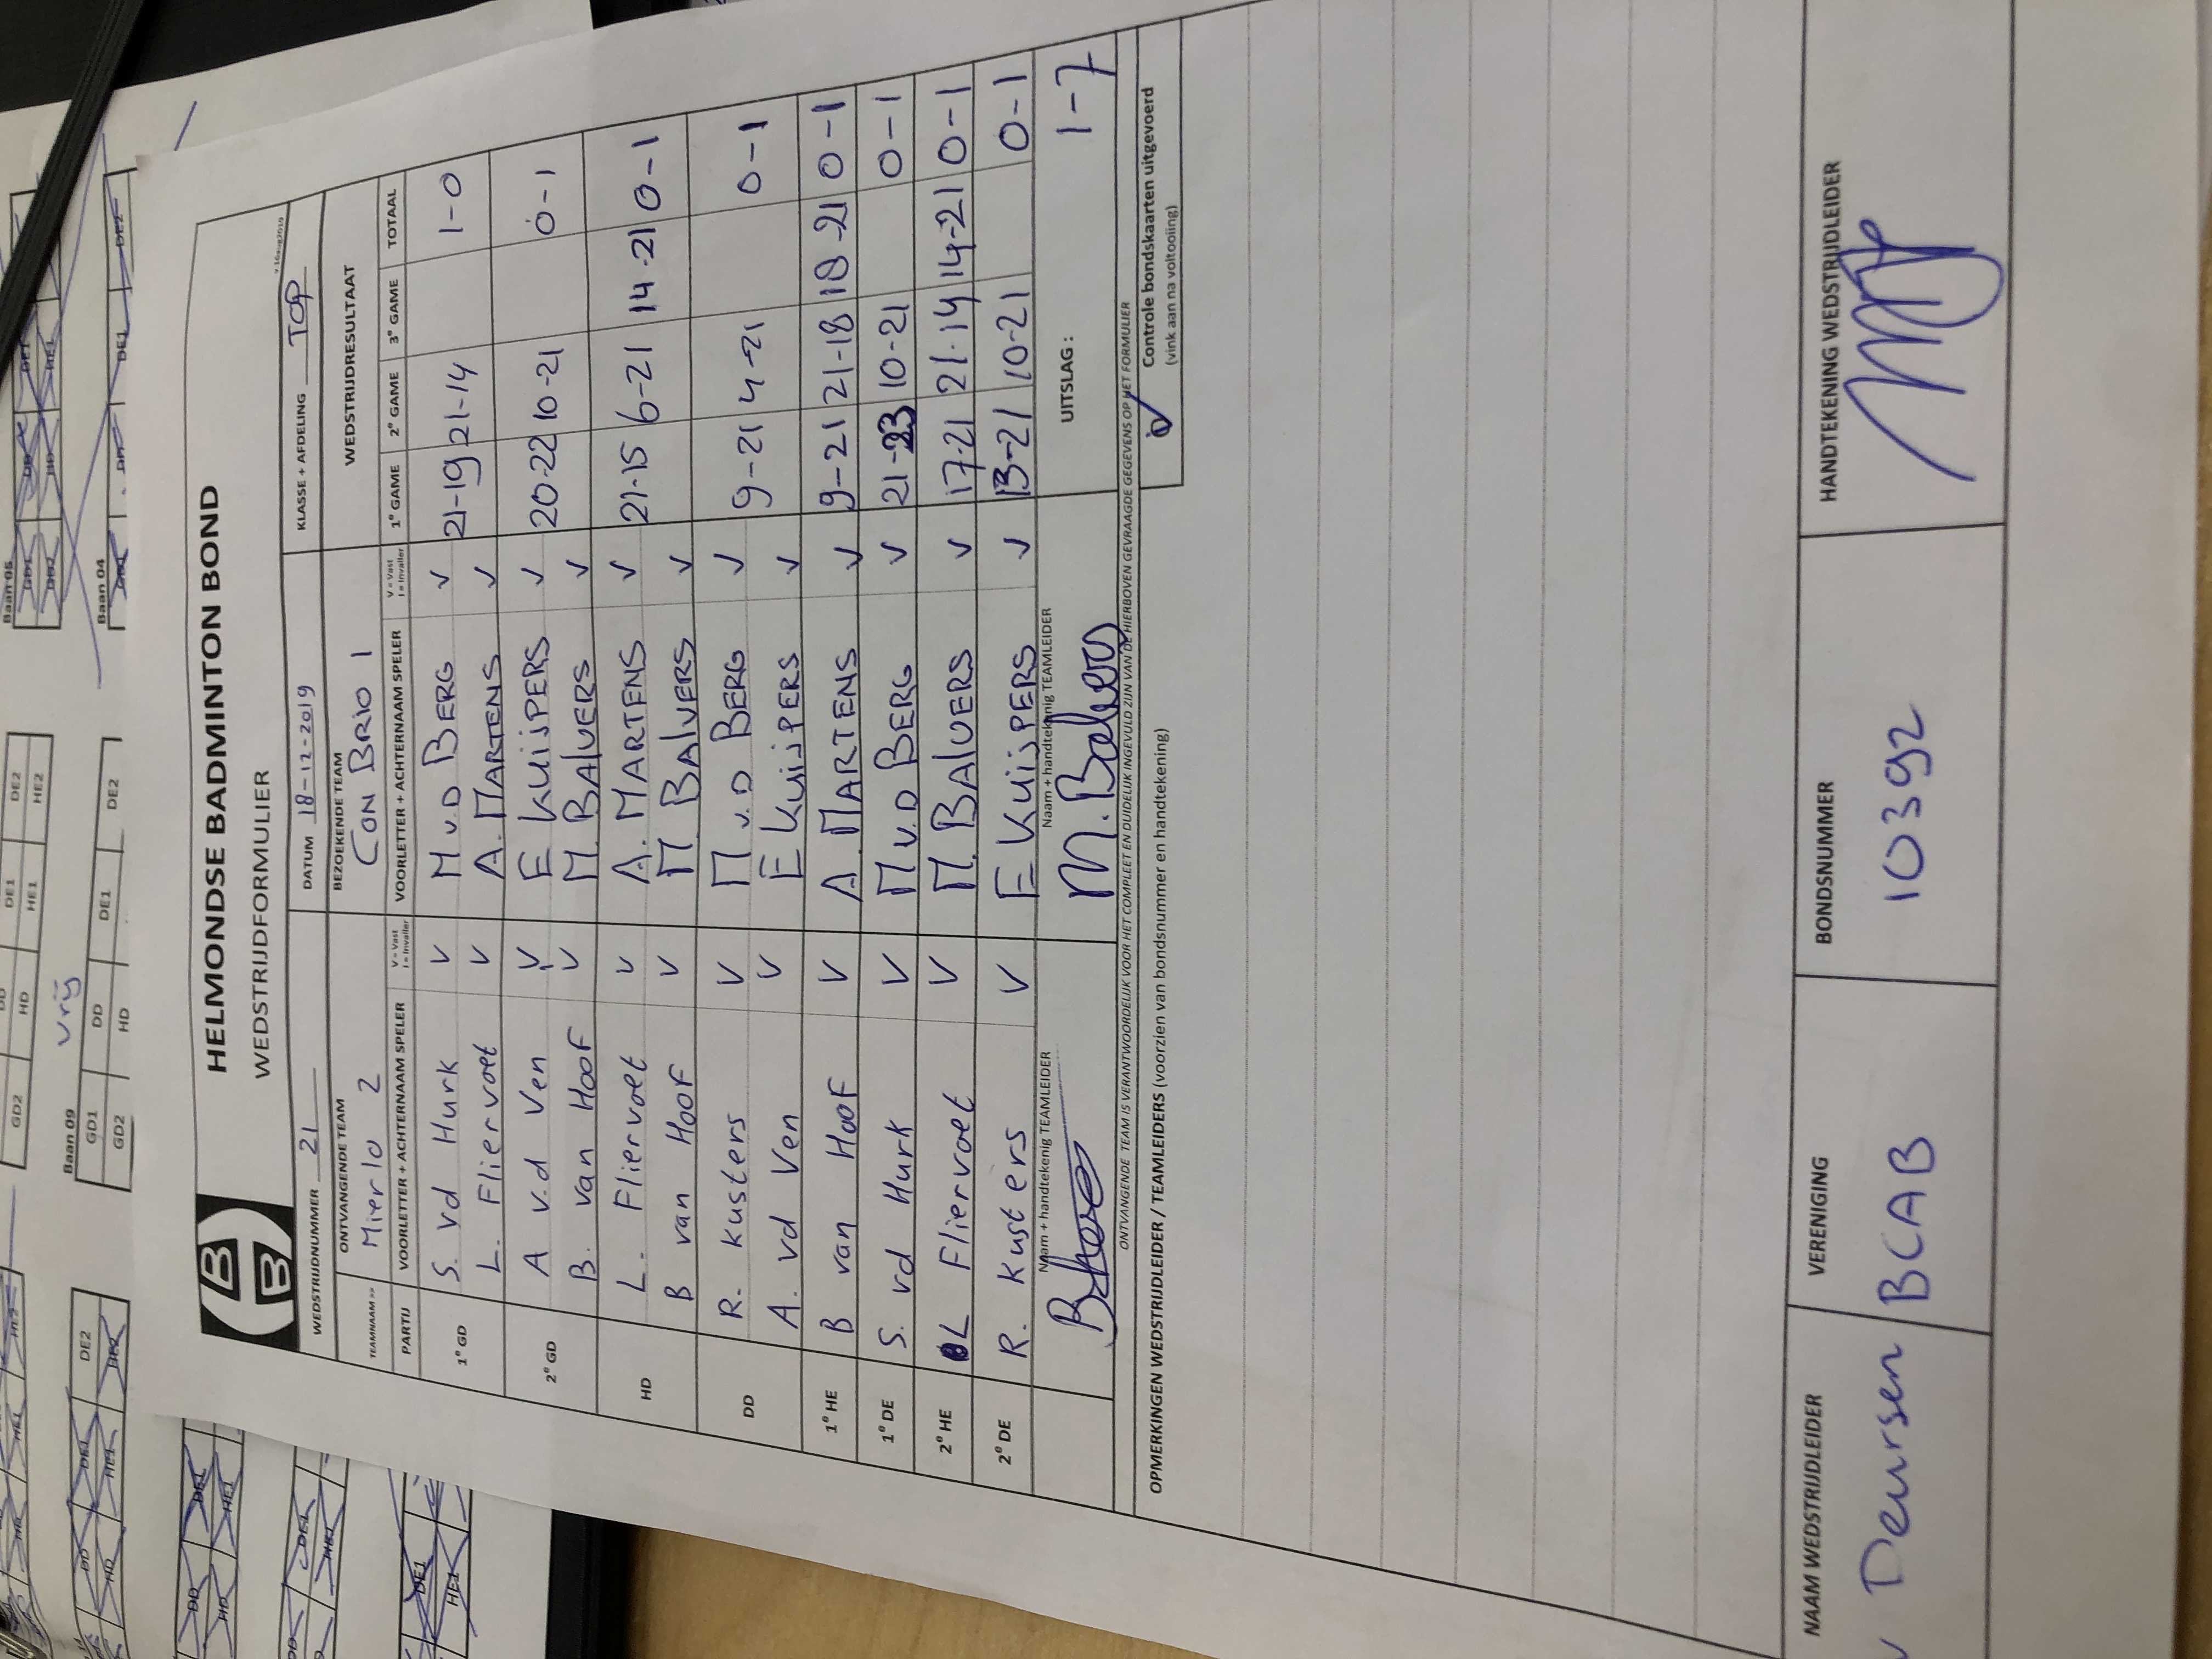 HELMONDSE BADMINTON BOND
WEDSTRIJDFORMULIER
WEDSTRIJDNUMMER 21 DATUM 18-12-2019 KLASSE + AFDELING TOP
TEAMNAAM >> ONTVANGENDE TEAM Mierlo 2 BEZOEKENDE TEAM CON BRIO 1 WEDSTRIJDRESULTAAT
PARTIJ VOORLETTER + ACHTERNAAM SPELER V = Vast I = Invaller VOORLETTER + ACHTERNAAM SPELER V = Vast I = Invaller 1e GAME 2e GAME 3e GAME TOTAAL
1e GD S. vd Hurk V M v.D BERG V 21-19 21-14 1-0
L. Fliervoet V A. MARTENS V
2e GD A v.d Ven V E KUIJPERS V 20-22 10-21 0-1
B. van Hoof V M. BALVERS V
HD L. Fliervoet V A. MARTENS V 21-15 6-21 14-21 0-1
B van Hoof V M. BALVERS V
DD R. Kusters V M v.D BERG V 9-21 4-21 0-1
A. vd Ven V E KUIJPERS V
1e HE B van Hoof V A. MARTENS V 9-21 21-18 18-21 0-1
1e DE S. vd Hurk V M v.D BERG V 21-23 10-21 0-1
2e HE L Fliervoet V M. BALVERS V 17-21 21-14 14-21 0-1
2e DE R. Kusters V E KUIJPERS V 13-21 10-21 0-1
Naam + handtekenig TEAMLEIDER Naam + handtekenig TEAMLEIDER M. Balvers UITSLAG : 1-7
ONTVANGENDE TEAM IS VERANTWOORDELIJK VOOR HET COMPLEET EN DUIDELIJK INGEVULD ZIJN VAN DE HIERBOVEN GEVRAAGDE GEGEVENS OP HET FORMULIER
OPMERKINGEN WEDSTRIJDLEIDER / TEAMLEIDERS (voorzien van bondsnummer en handtekening)
Controle bondskaarten uitgevoerd
(vink aan na voltooiing)
NAAM WEDSTRIJDLEIDER VERENIGING BONDSNUMMER HANDTEKENING WEDSTRIJDLEIDER
v Deursen BCAB 10392
Baan 05
Baan 04
Baan 09 vrij
GD1 DD DE1 DE2
GD2 HD